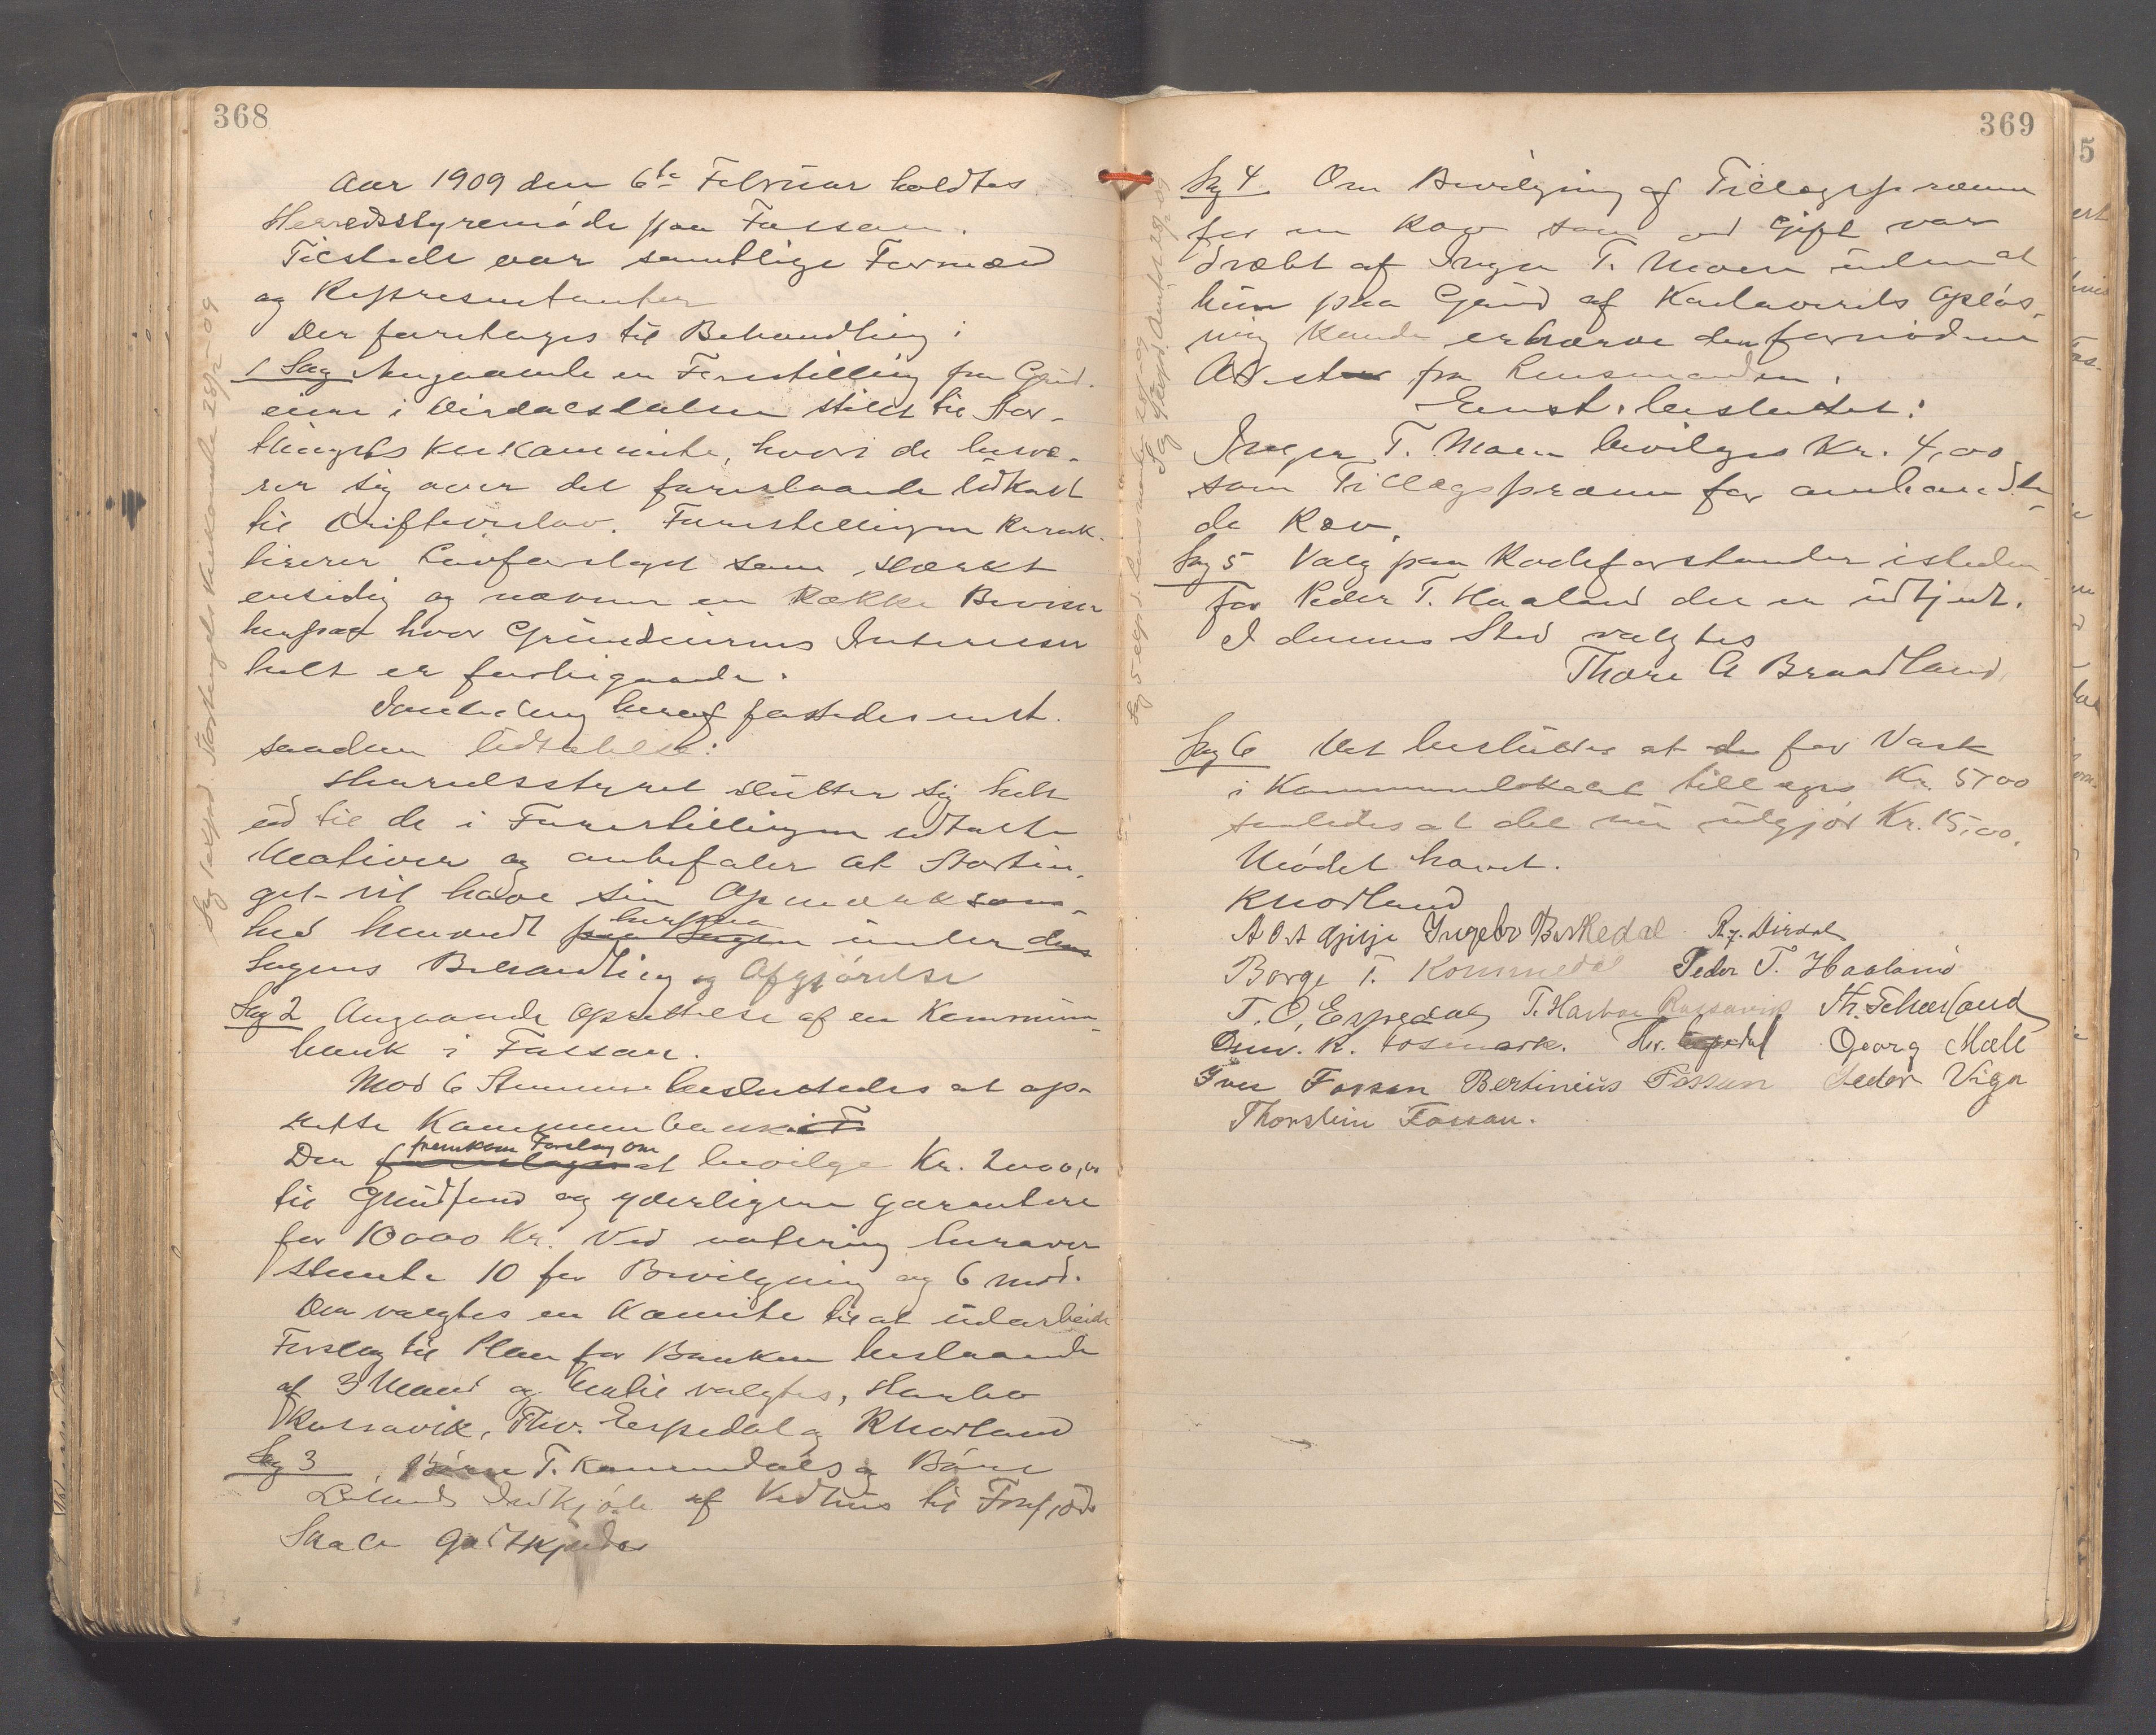 368
Aar 1909 den 6te Februar holdtes
Herredsstyremøde paa Fossan.
Tilstede var samtlige Formænd
og Repræsentanter
Der foretages til Behandling:
1 Sag Angaaende en Forestilling fra Grund-
eiere i Dirdalsdalen stilet til Stor-
thingets Kirkekomite, hvori de besvæ-
rer sig over det foreslaaende Udkast
til Driftevislov. Forestillingen karak-
tiserer Lovforslaget som stærkt
ensidig og nævner en Række Beviser
herpaa hvor Grundeiernes Interesser
helt er forbigaaende.
I Anledning heraf fattedes enst.
saaden Udtalelse:
Herredsstyret slutter sig helt
ud til de i Forestillingen udtalte
Motiver og anbefaler at Stortin-
get vil have sin Opmærksom-
hed henvendt paa Sagen herpaa under den
Sagens Behandling og Afgjørelse
Sag 2 Angaaende Oprettelse af en Kommune-
bank i Fossan.
Mod 6 Stemmer besluttedes at op-
rette Kommunebank i F.
Der fremkom Forslag om at bevilge Kr. 2000,00
til Grundfond og yderligere garantere
for 10000 Kr. Ved votering herover
stemte 10 for Bevilgning og 6 mod.
Der valgtes en Komite til at udarbeide
Forslag til Plan for Banken bestaaende
af 3 Mand og hertil valgtes, Harbo
Rossavik, Thv. Espedal og R Nordland
Sag 3 Børre T. Kommedals og Børre
Lilands Indkjøb af Vedhus til Forsjøds
Skole godkjendes
Sag 1 expd. Stortingets Kirkekomite 28/2-09
369
Sag 4 Om Bevilgning af Tillægspræmie
for en Ræv som ved Gift var
dræbt af Inger T. Moen uden at
hun paa Grund af Kadaverets Opløs-
ning kunde erhverve den fornødne
Attest fra Lensmanden.
Enst. besluttet:
Inger T. Moen bevilges Kr. 4,00
som Tillægspræmie for omhandle-
de Ræv.
Sag 5 Valg paa Rodeforstander isteden
for Peder T. Haaland der er udtjent.
I dennes Sted valgtes
Thore A Braadland
Sag 6 Det besluttes at der for Vask
i Kommunelokalet tillægges Kr. 5,00
saaledes at det nu udgjør Kr. 15,00.
Mødet hævet.
R Nordland
A O A Gjilje Ingebr Birkedal R. J. Dirdal
Børge T. Kommedal Peder T. Haaland
T. O. Espedal T. Harboe Rossavik Th. Tehærland
Osm. R. Fosmark. Thv. Espedal Georg Mæle
Iver Fossan Bertinius Fossan Peder Viga
Thorstein Fossan.